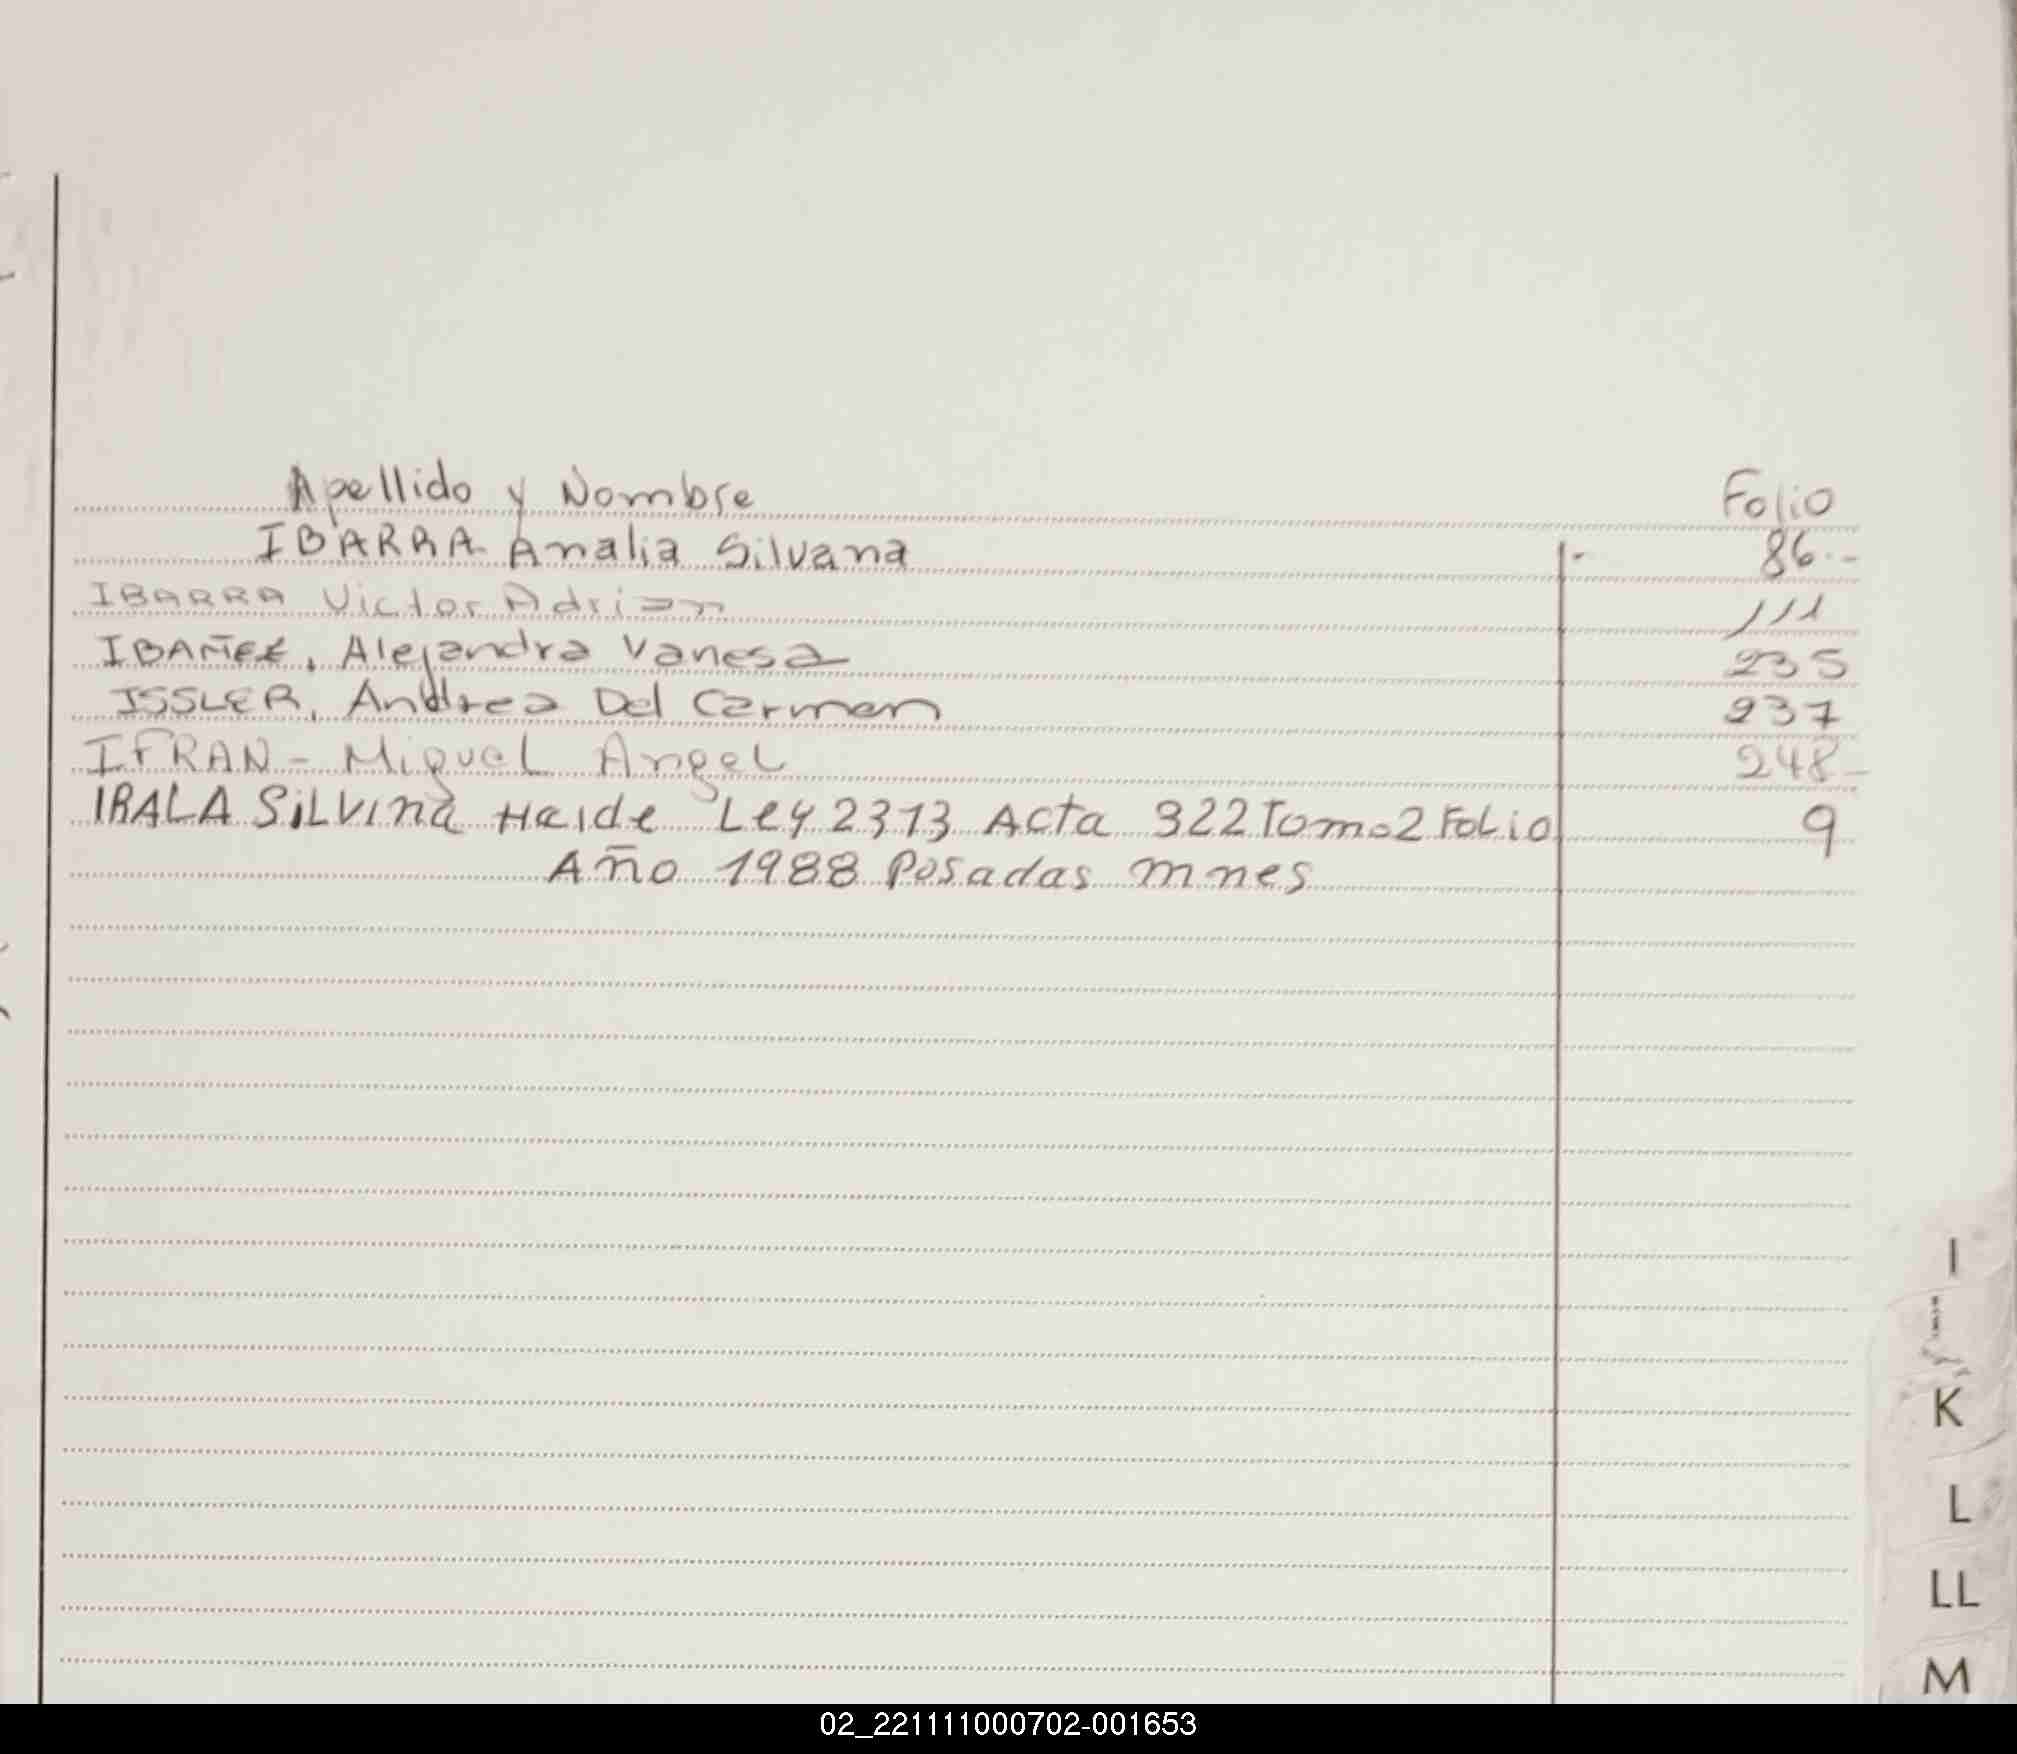 Apellido y Nombre Folio
IBARRA Analia Silvana 86.-
IBARRA Victor Adrian 111
IBAÑEZ, Alejandra Vanesa 235
ISSLER, Andrea Del Carmen 237
IFRAN - Miguel Angel 248-
IRALA SiLVina Haide Ley 2313 Acta 322 Tomo 2 FoLio 9
Año 1988 Posadas mnes
I
K
L
LL
M
02_221111000702-001653